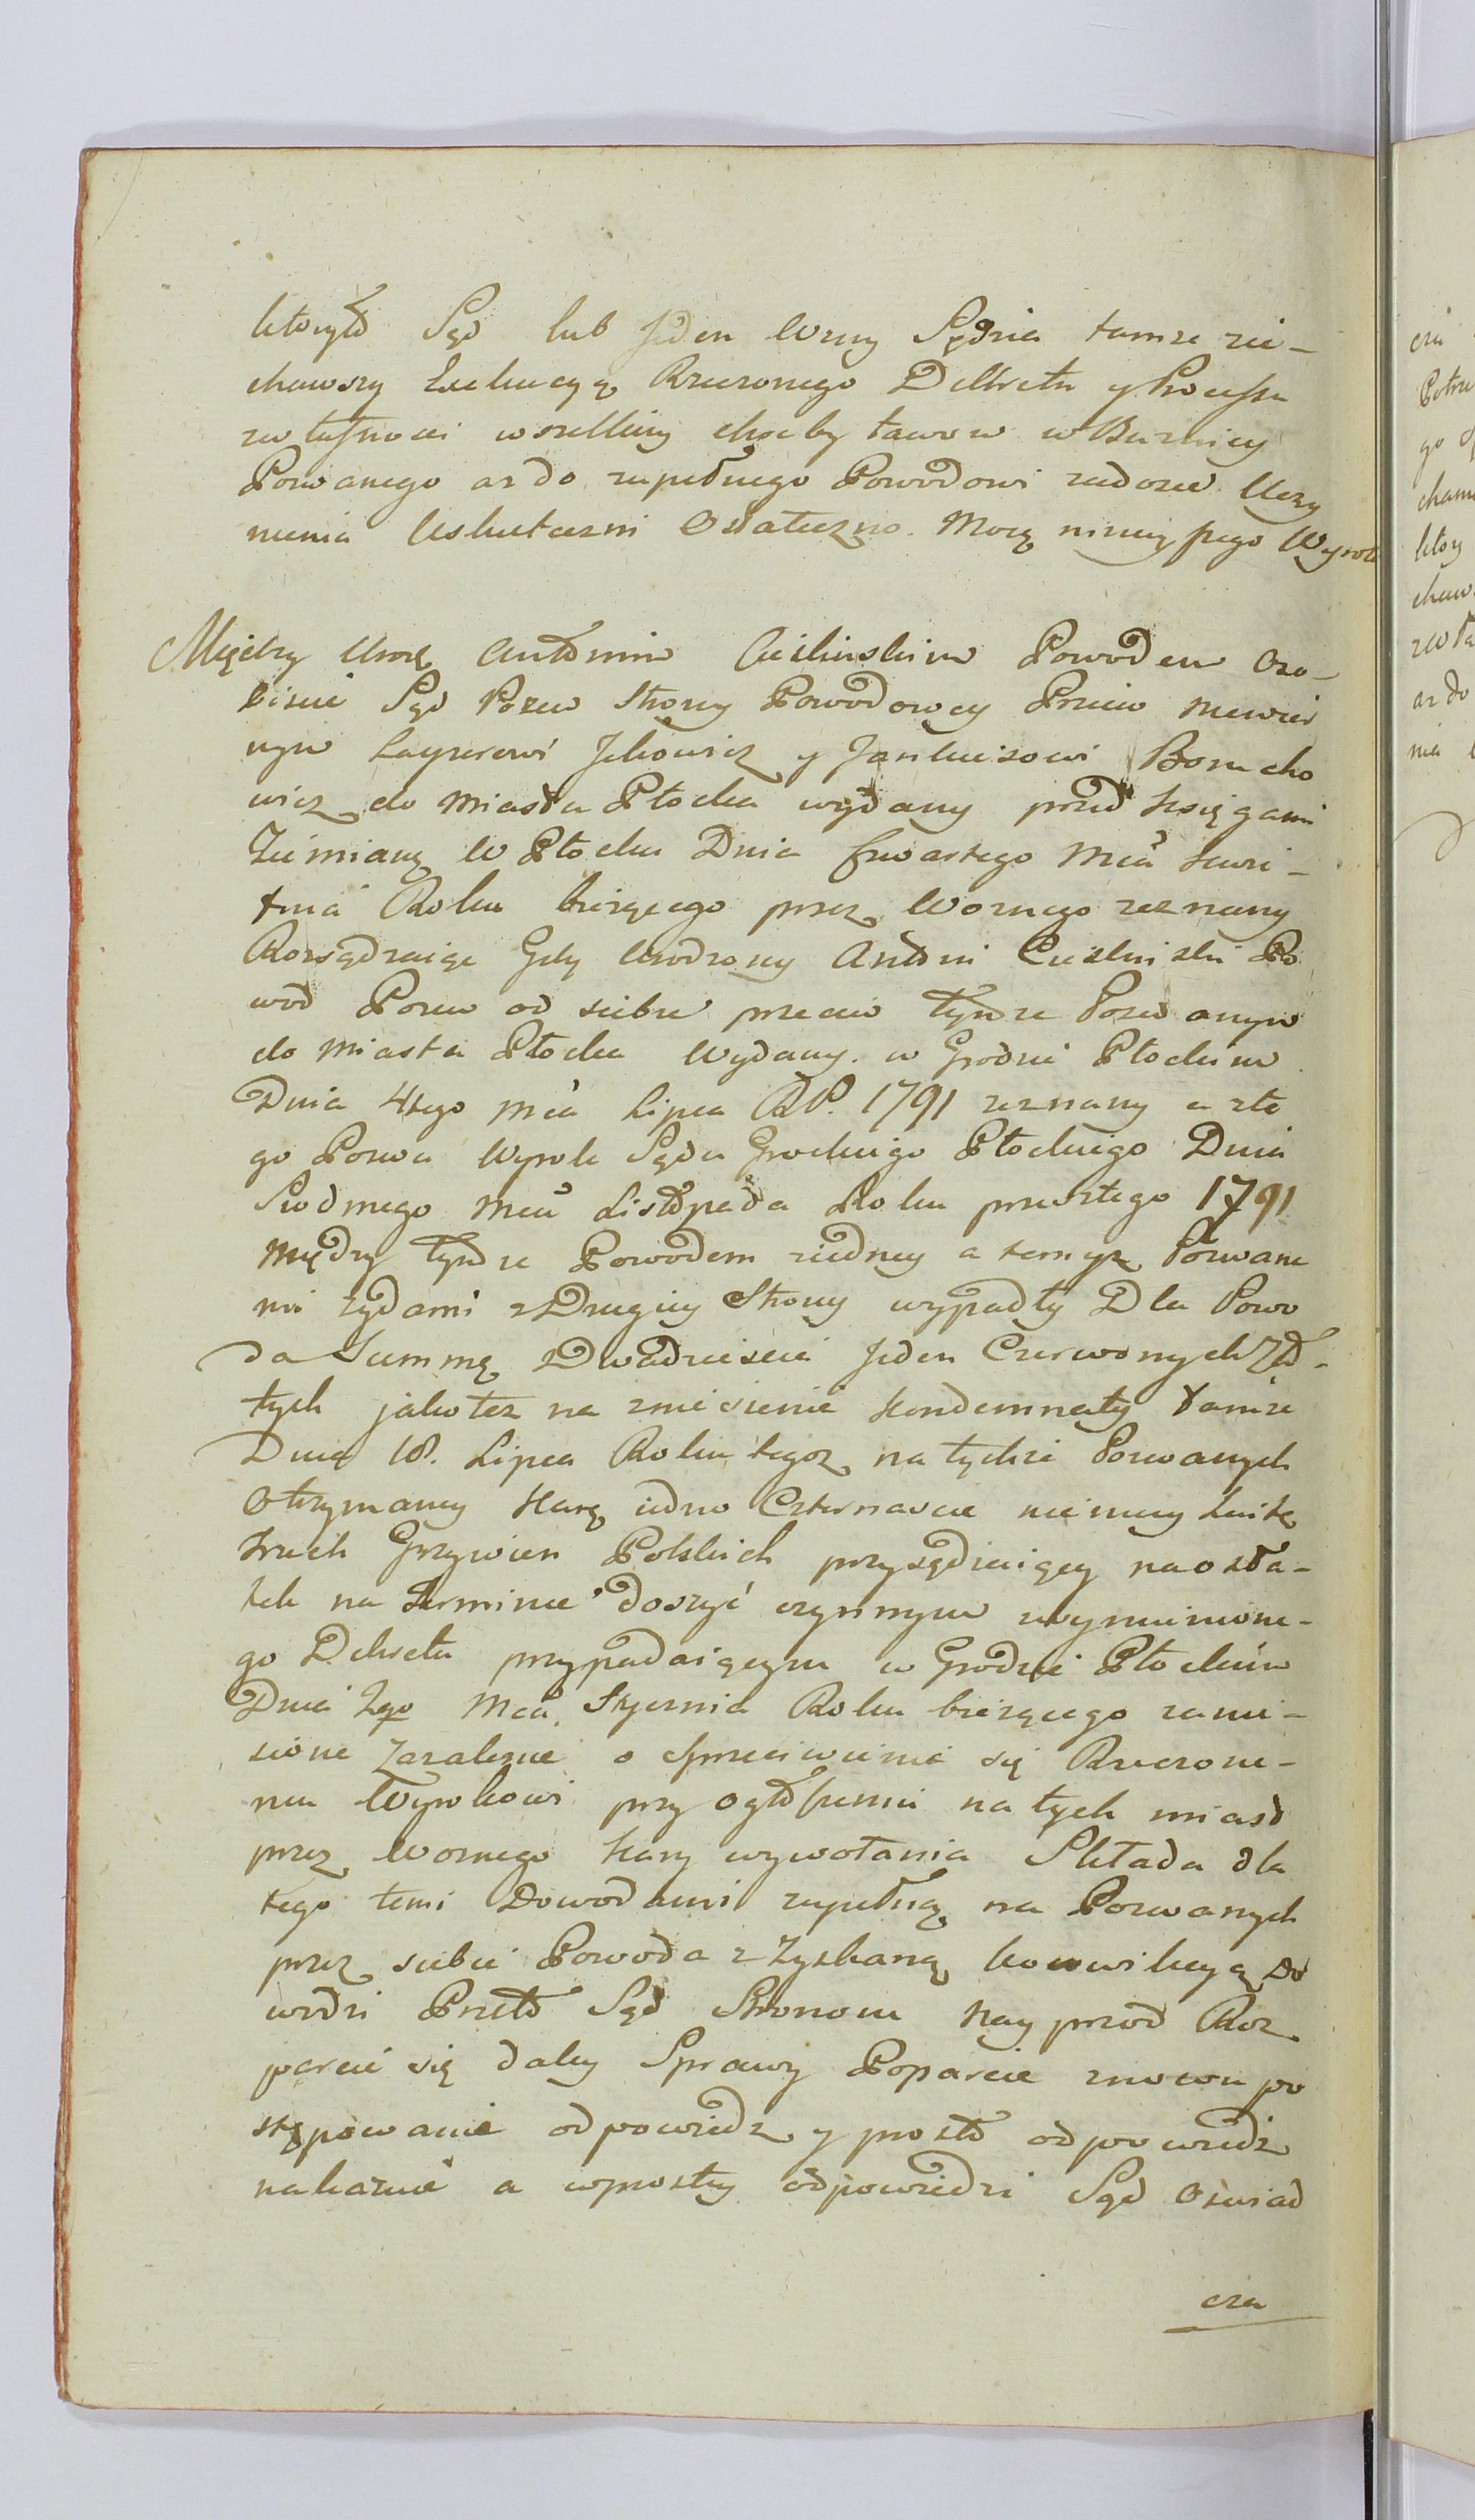 ktory to Sąd lub Jeden Wzny Sędzia tamze zie-
chawszy Exekucyą Rzeczonego Dekretu y Processu
zwłasnosci wszelkiey choćby tawow w Burnicy
Pozwanego az do zupełnego Powodowi zadosic Uczy
nienia Uskuteczni Ostateczno. Mocą ninieyszego Wyrok
Między Uroz Antonim Cieslinskim Powodem Oso-
biscie Sąd Pozew Strony Powodowey Prziw Niewier
nym Layzerowi Jckowicz y Jankusowi Borucho
wicz do Miasta Płocka wydany przed Xsięgami
Ziemianą W Płocku Dnia Czwartego Mca Kwie-
tnia Roku bieżącego przez Woznego zeznany
Rozsądzaiąc Gdy Urodzony Antoni Cieslinski Po
wod Pozew od siebie przeciw Tymze Pozwanym
do Miasta Płocka Wydany. w Grodzie Płockim
Dnia 4tego Mca Lipca RP. 1791 zeznany a zte
go Pozwu Wyrok Sądu Grodzkiego Płockiego Dnia
Siodmego Mca Listopada Roku przeszłego 1791
Między Tymze Powodem ziedney a temyz Pozwane
mi Zydami z Drugiey Strony wypadły Dla Powo
da Summę Dwadziescia Jeden Czerwonych Zło-
tych jako tez na zniesienie Kondemnaty tamze
Dnia 18. Lipca Roku tegoz na tychze Pozwanych
Otrzymaney Karę iedno Czternascie niemney
trzech Grzywien Polskich przysądzaiący na osta-
tek na Terminie dosyć czynnym zwymienione-
go Dekretu przypadaiącym w Grodzie Płockim
Dnia 2go Mca, Stycznia Roku bieżącego zanie-
sione Zazalenie o Sprzeciwienie się Rzeczone-
mu Wyrokowi przy ogłoszeniu na tych miast
przez Woznego Kary wywołania Składa dla
tego temi Dowodami zupełną na Pozwanych
przez siebie Powoda z Zyskaną konwikcyą Do
wodzi Przeto Sąd Stronom Nayprzod Roz
parcie się daley Sprawy Poparcie znowu po
stępowanie odpowiedz y prosto odpowiedz
nakazuie a wprostey odpowiedzi Sąd Oswiad
cza